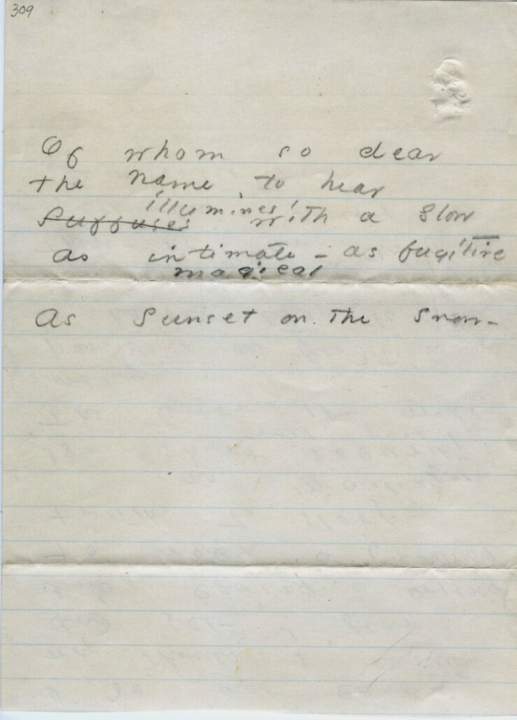 309
Of whom so dear
the name to hear
illumines
Suffuses with a Glow
as intimate - as fugitive
magical
As Sunset on the Snow -